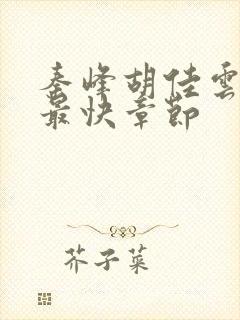 秦峰胡佳雲
最快章節
芥子菜